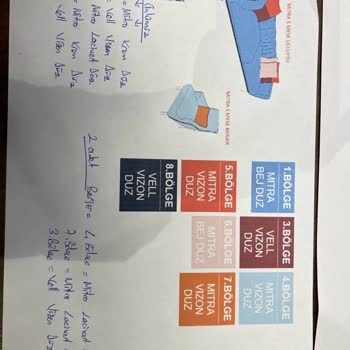 MITRA E.BASE ÜÇLÜ(YS)
MITRA E.BASE BERJER
1.BÖLGE
MITRA
BEJ DUZ
3.BÖLGE
VELL
VIZON
DUZ
4.BÖLGE
MITRA
VIZON
DUZ
5.BÖLGE
MITRA
VIZON
DUZ
6.BÖLGE
MITRA
BEJ DUZ
7.BÖLGE
MITRA
VIZON
DUZ
8.BÖLGE
VELL
VIZON
DUZ
= Mitra Krem Düz
= Vell Vizon Düz
Mitra Lacivert Düz
Vell Vizon Düz
= Mitra Krem Düz
2 adet Berjer = 4.Bölge = Mitra Lacivert
7.Bölge = Mitra Lacivert
3.Bölge = Vell Vizon Düz